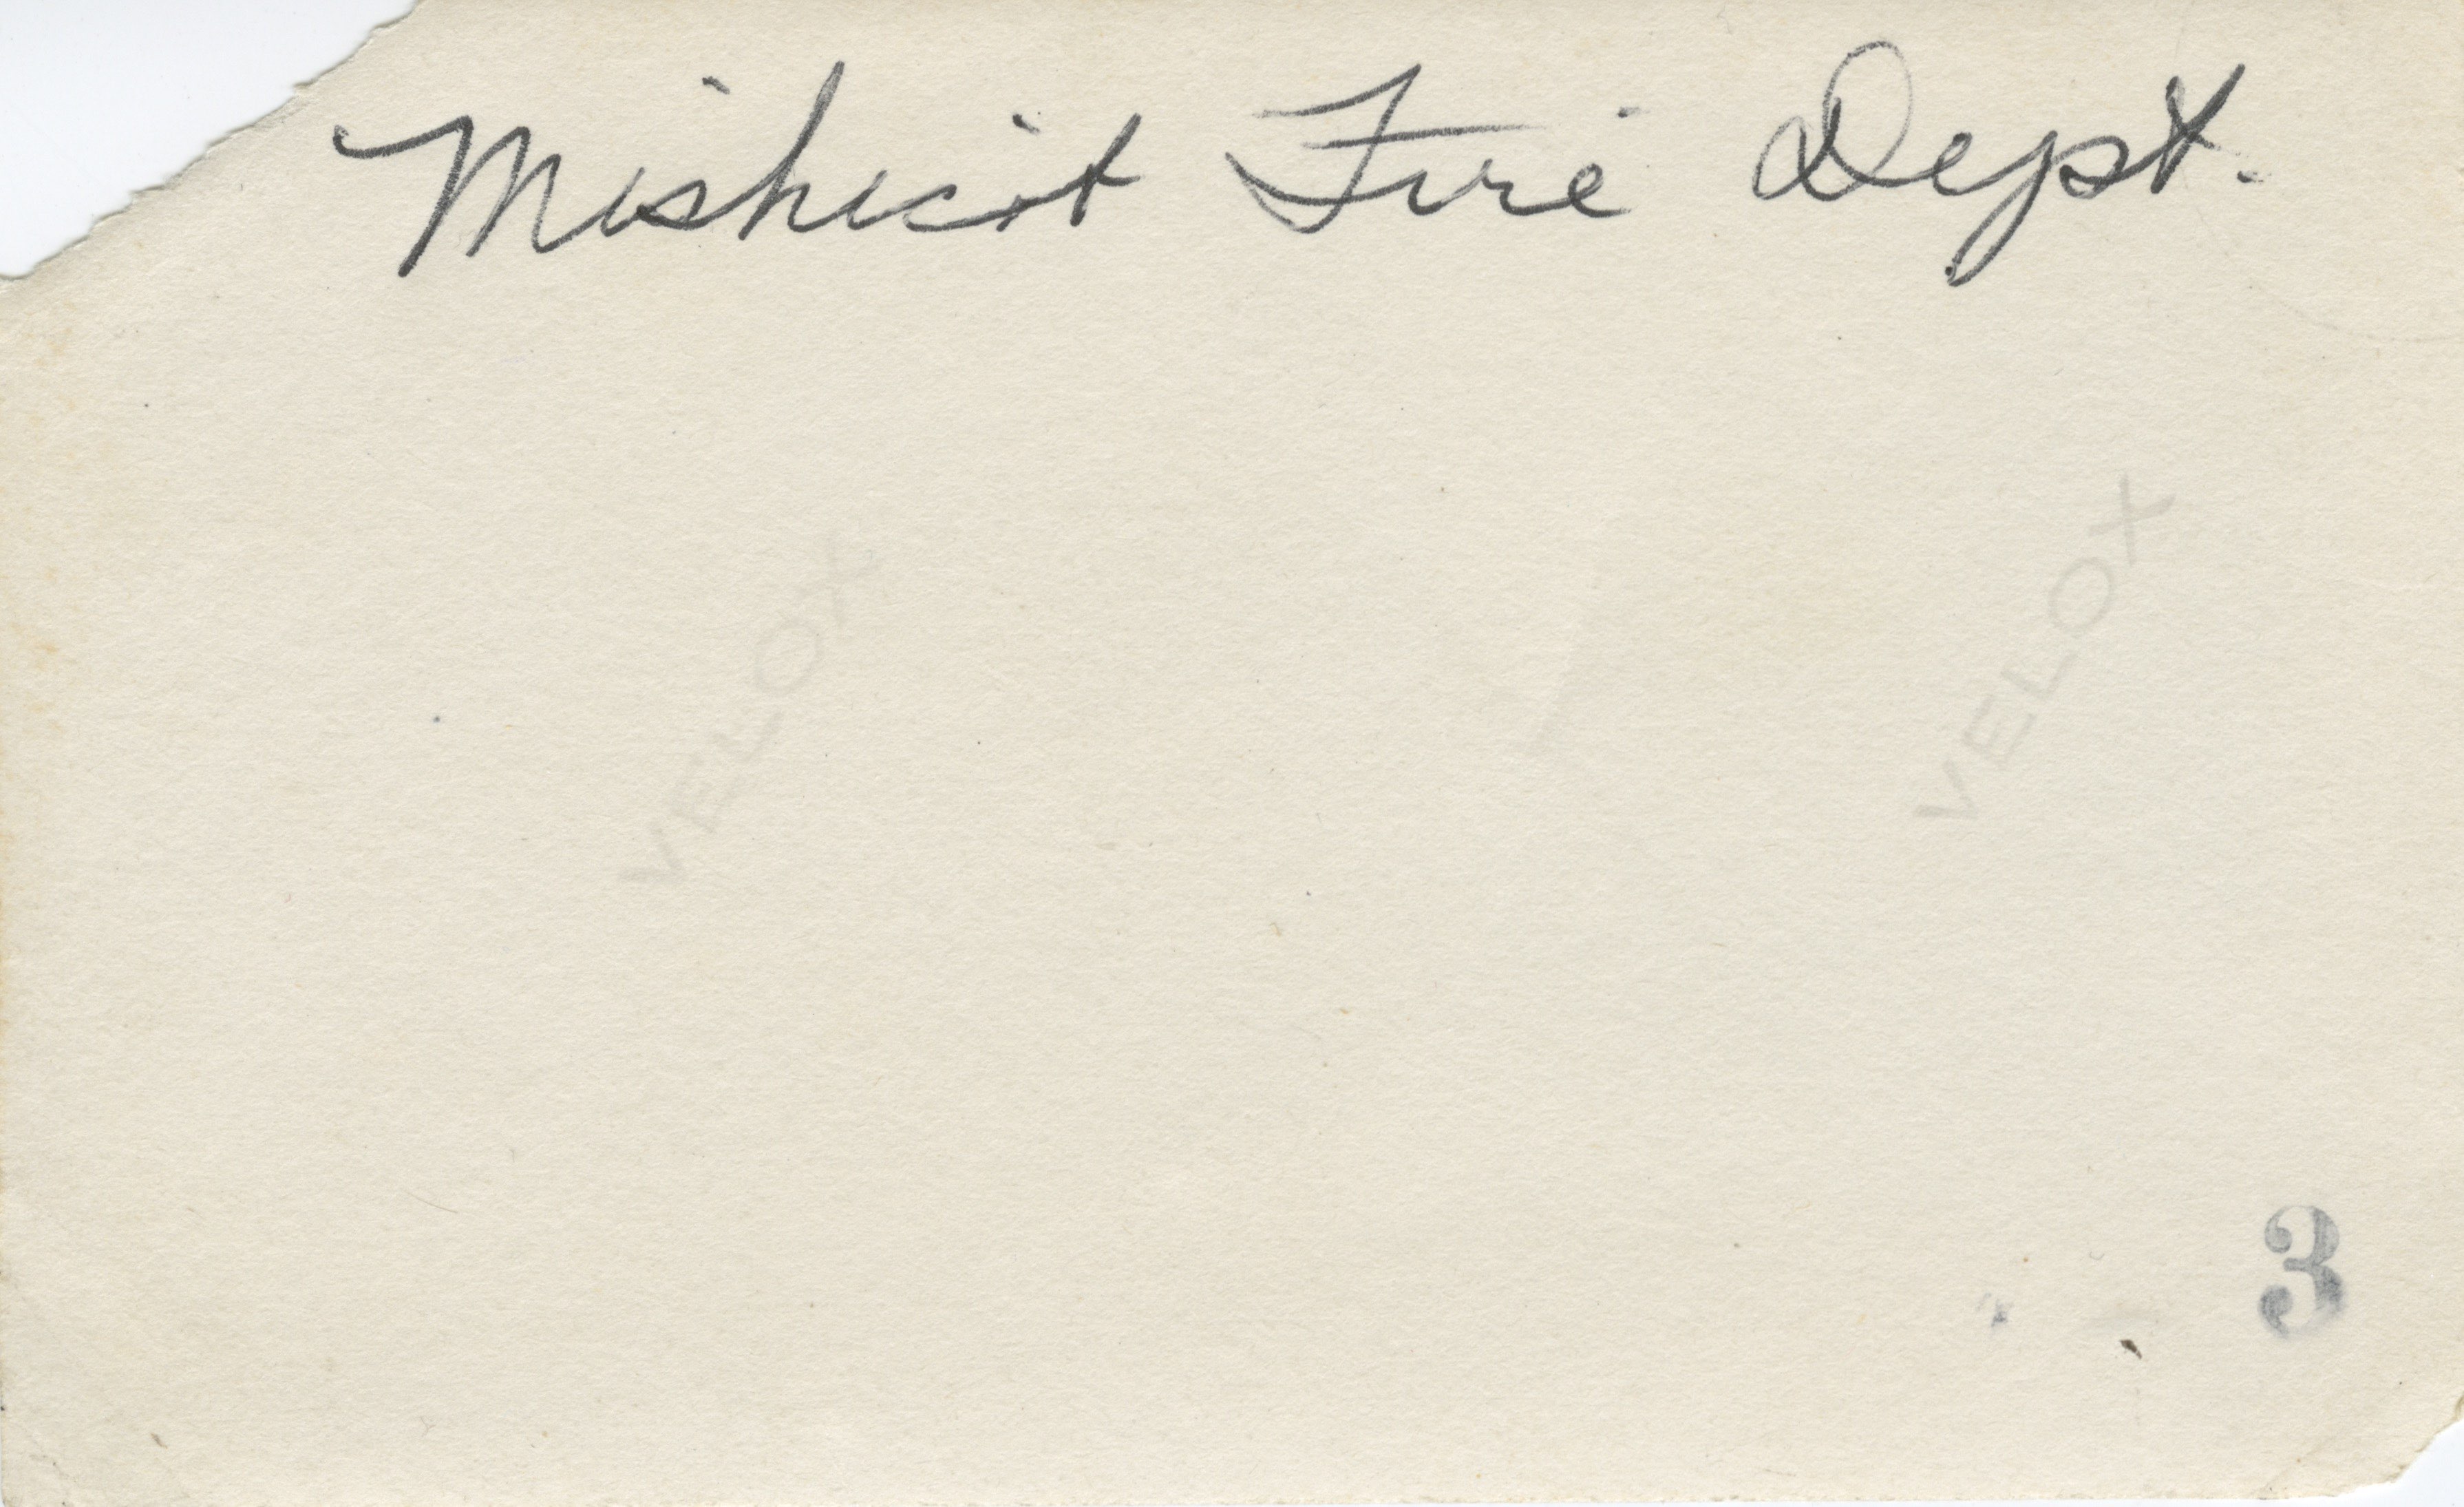 Mishicot Fire Dept.
VELOX
VELOX
3